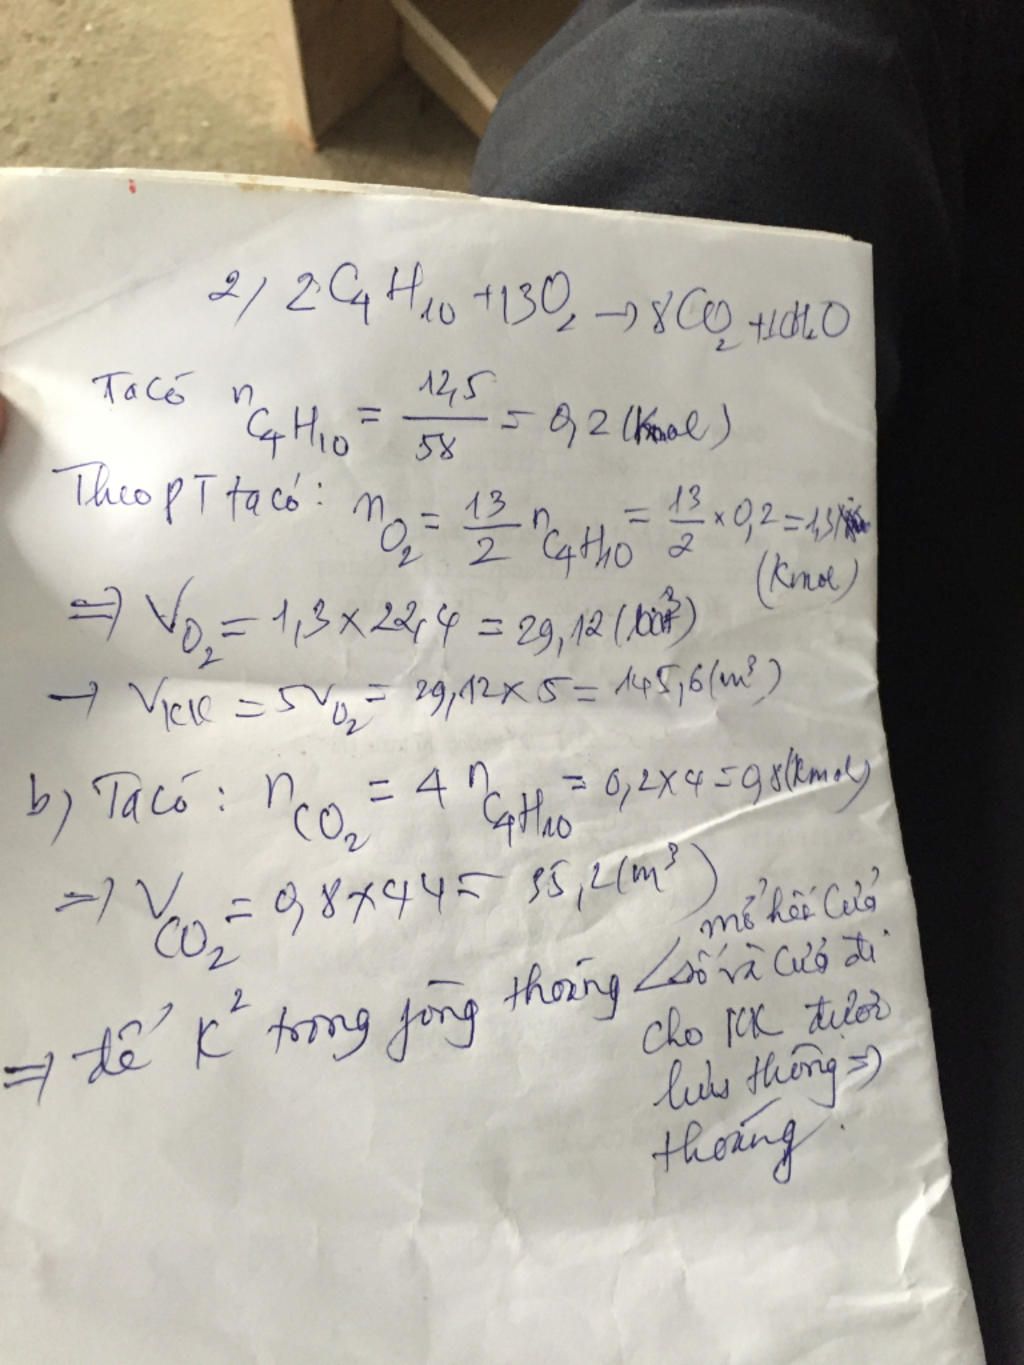 2) 2C₄H₁₀ + 13O₂ → 8CO₂ + 10H₂O
Ta có n C₄H₁₀ = 12,5/58 = 0,2 (Kmol)
Theo PT ta có: n O₂ = 13/2 n C₄H₁₀ = 13/2 × 0,2 = 1,3
(Kmol)
=> V O₂ = 1,3 × 22,4 = 29,12 (m³)
→ V KK = 5 V O₂ = 29,12 × 5 = 145,6 (m³)
b) Ta có: n CO₂ = 4 n C₄H₁₀ = 0,2 × 4 = 0,8 (Kmol)
=> V CO₂ = 0,8 × 44 = 35,2 (m³)
=> để K² trong thoáng
mở hết cửa
sổ và cửa đi
cho KK được
lưu thông =>
thoáng.